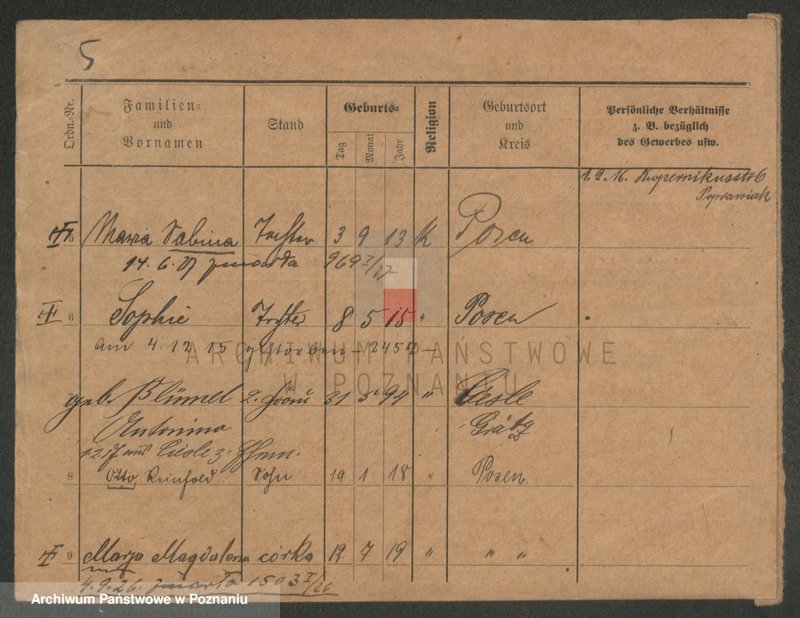 5
Ordn.-Nr.
Familien=
und
Vornamen
Stand
Geburts=
Tag
Monat
Jahr
Religion
Geburtsort
und
Kreis
Persönliche Verhältnisse
z. B. bezüglich
des Gewerbes usw.
1. 2. 16. Kopernikusstr 6
Maria Sabina Tochter 3 9 13 K Posen
14. 6. 27 zmarła 969 I/27
6 Sophie Tochter 8 5 15 " Posen
am 4. 12 15 gestorben - 2454 -
geb. Blümel 2. 31 5 94 "
Antonina Grätz
12. 17 aus
8 Otto Reinhold Sohn 19 1 18 " Posen.
9 Marja Magdalena córka 12 7 19 " " "
4. 9. 26. zmarła 1503 I/26
ARCHIWUM PAŃSTWOWE
W POZNANIU
Archiwum Państwowe w Poznaniu